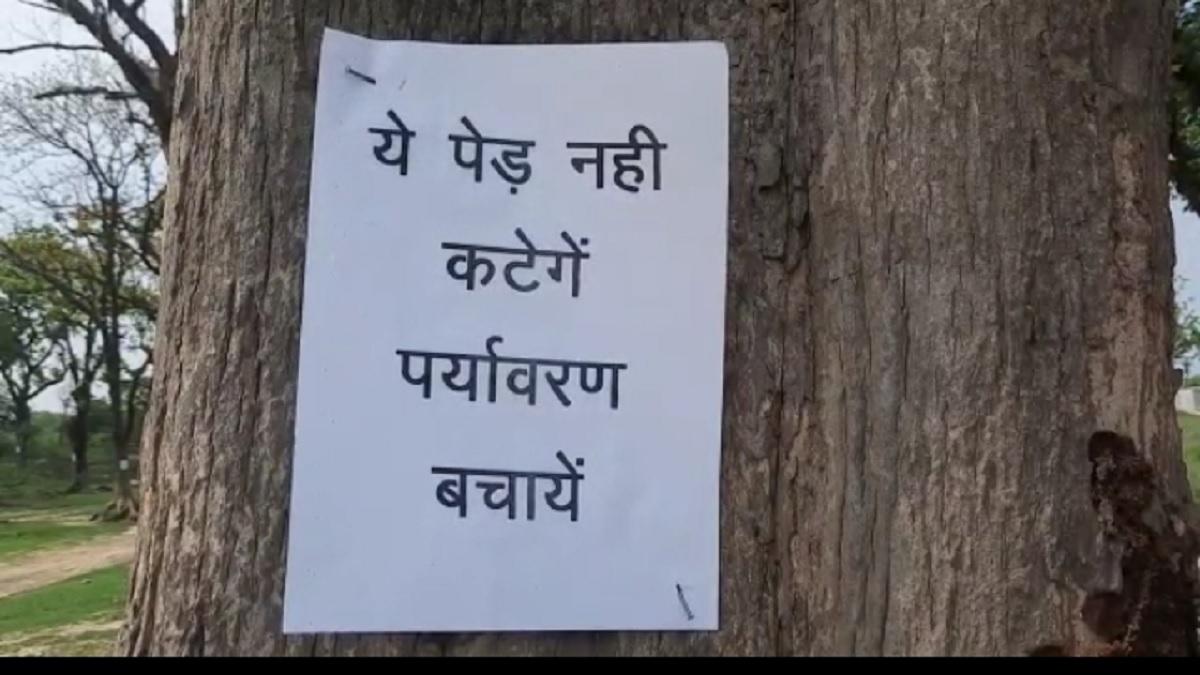 ये पेड़ नही
कटेगें
पर्यावरण
बचायें